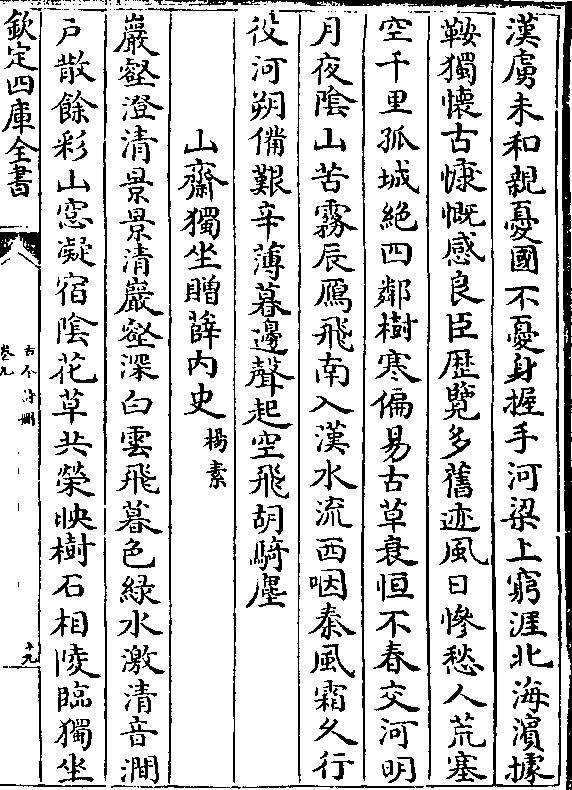 漢虜未和親憂國不憂身握手河梁上窮涯北海濱據
鞍獨懷古慷慨感良臣歴覽多舊迹風日慘愁人荒塞
空千里孤城絶四鄰樹寒偏易古草衰恒不春交河明
月夜陰山苦霧辰鴈飛南入漢水流西咽秦風霜久行
役河朔備艱辛薄暮邊聲起空飛胡騎塵
山齋獨坐贈薛内史 楊素
巖壑澄清景景清巖壑深白雲飛暮色綠水激清音澗
户散餘彩山窓凝宿陰花草共榮映樹石相陵臨獨坐
欽定四庫全書
古今詩刪
卷九
十九